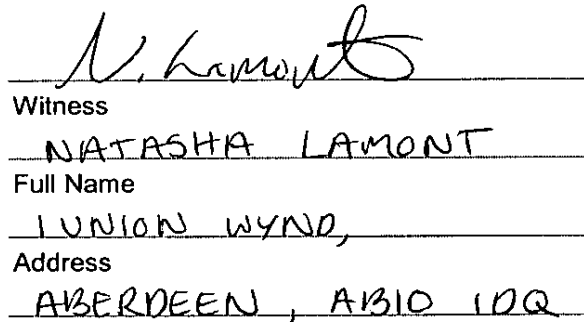 N. Lamont
Witness
NATASHA LAMONT
Full Name
1 UNION WYND,
Address
ABERDEEN, AB10 1DQ